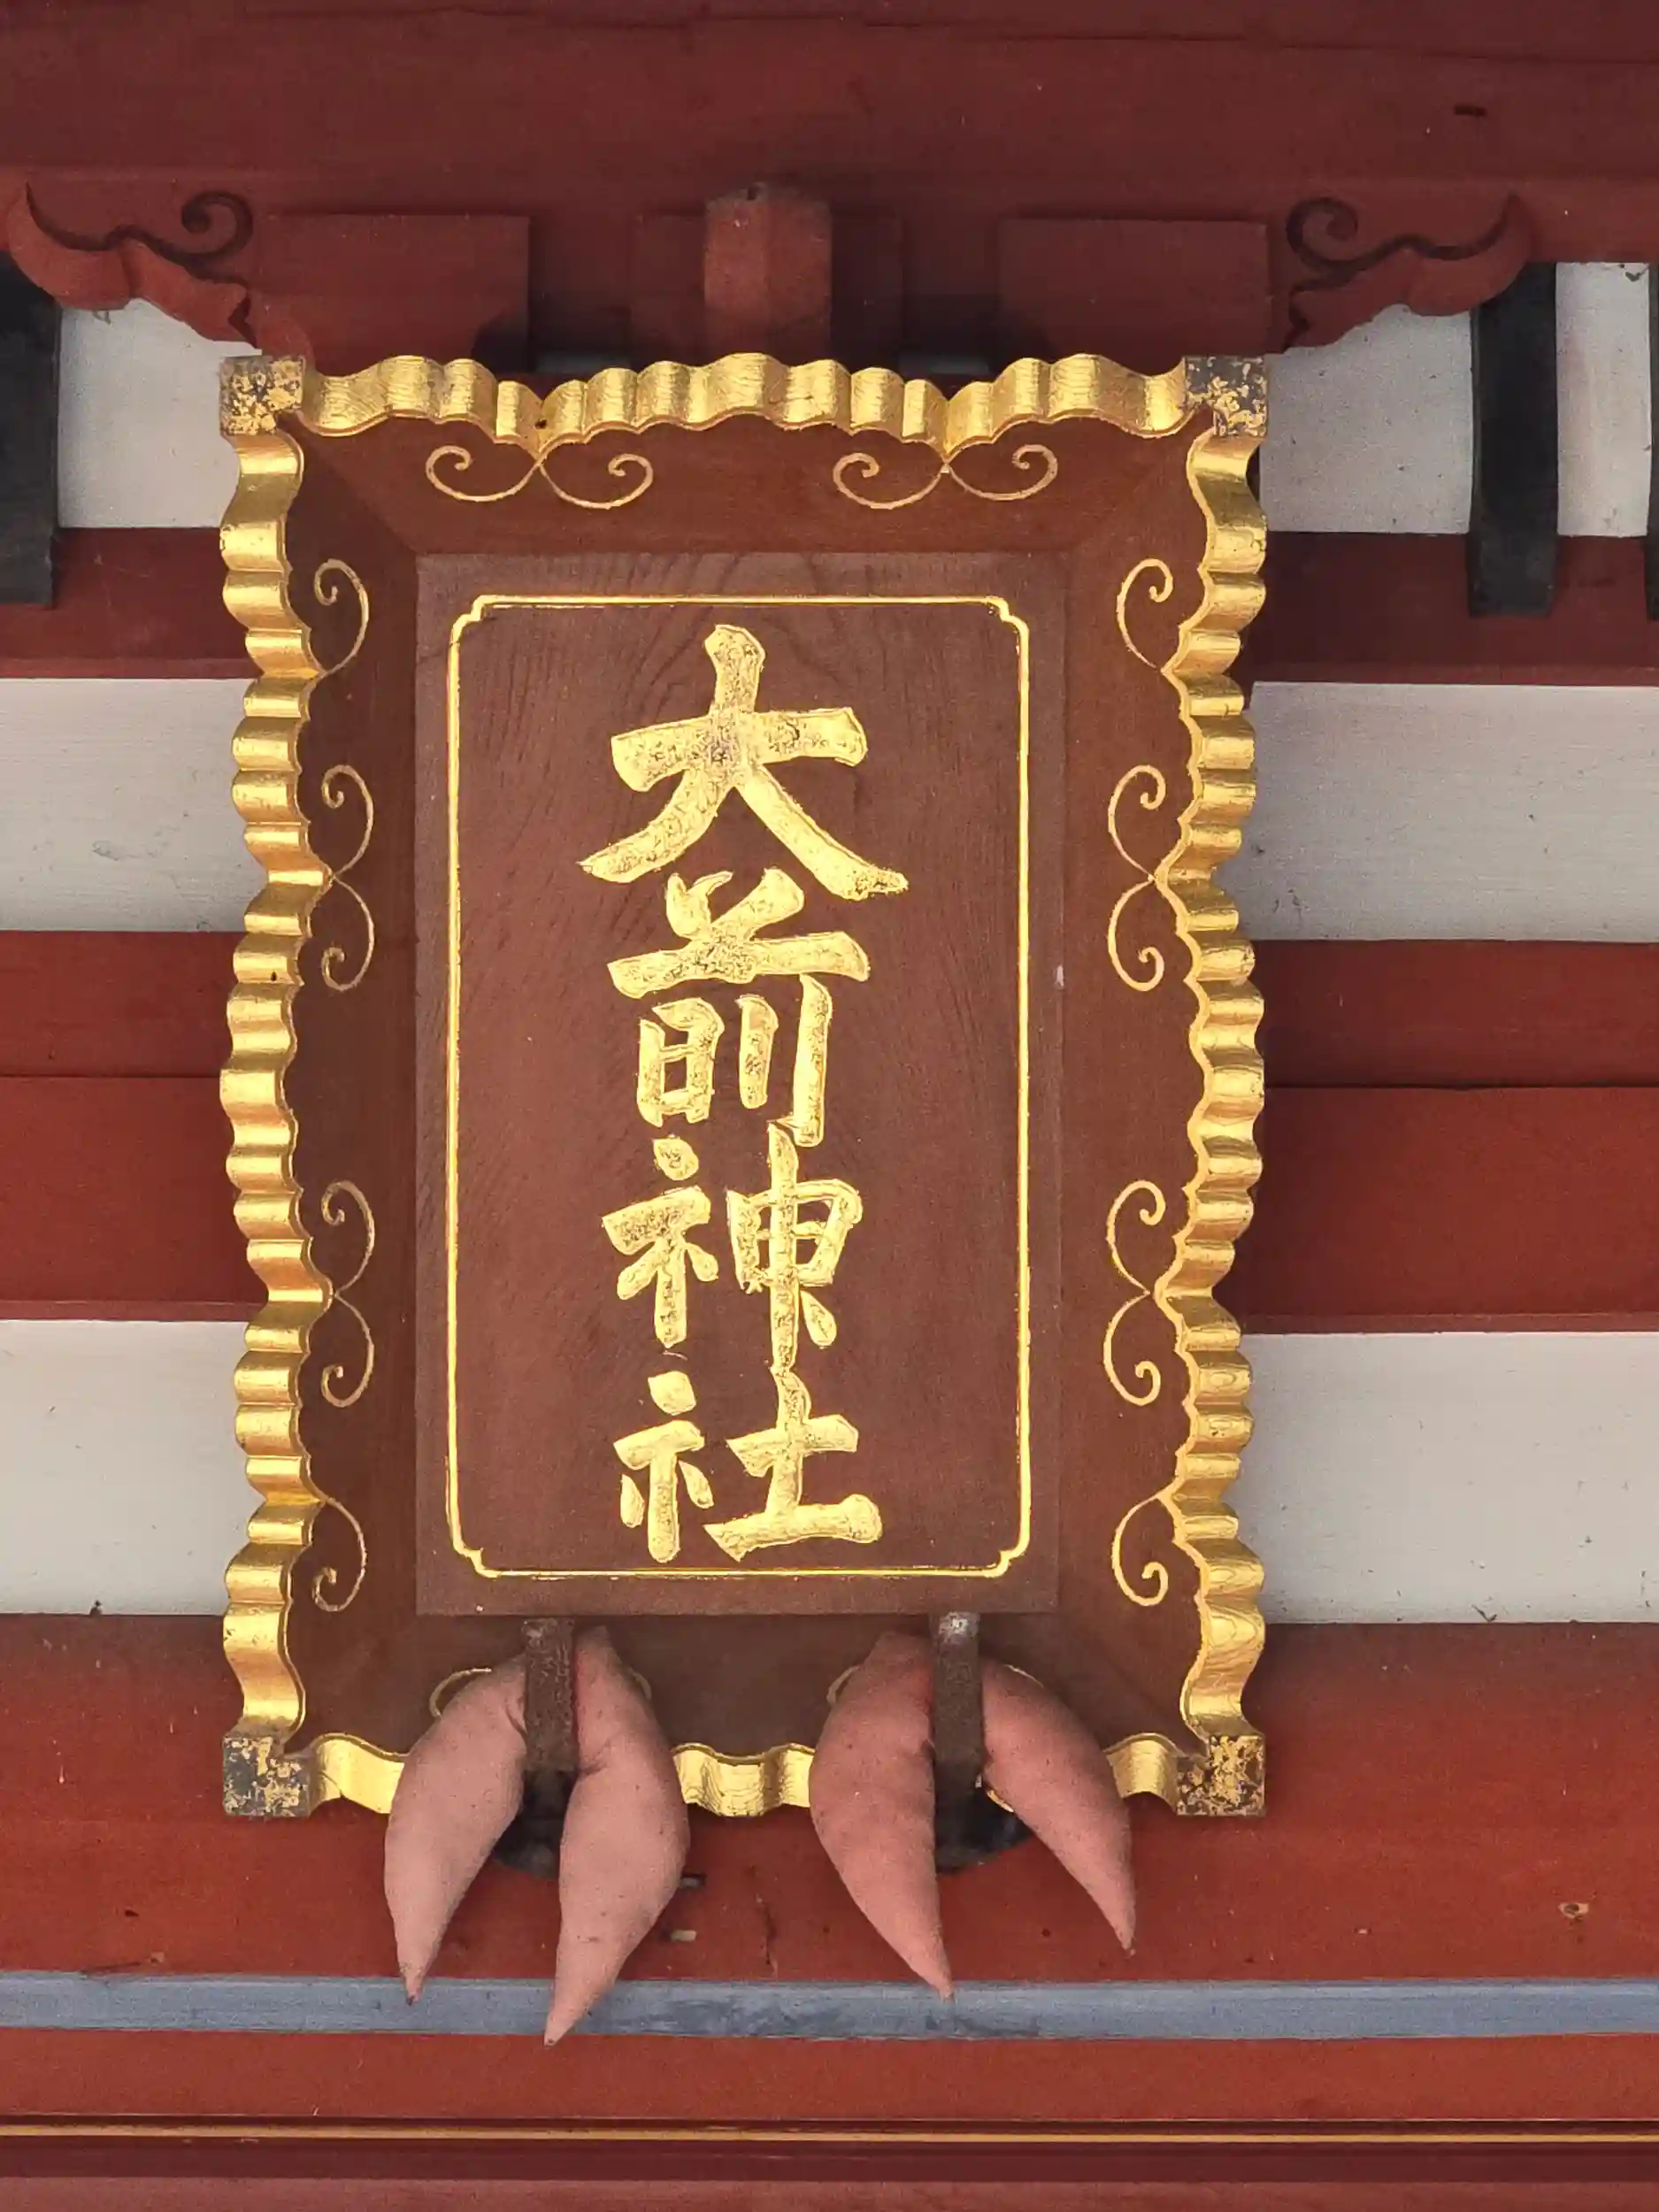 大前神社